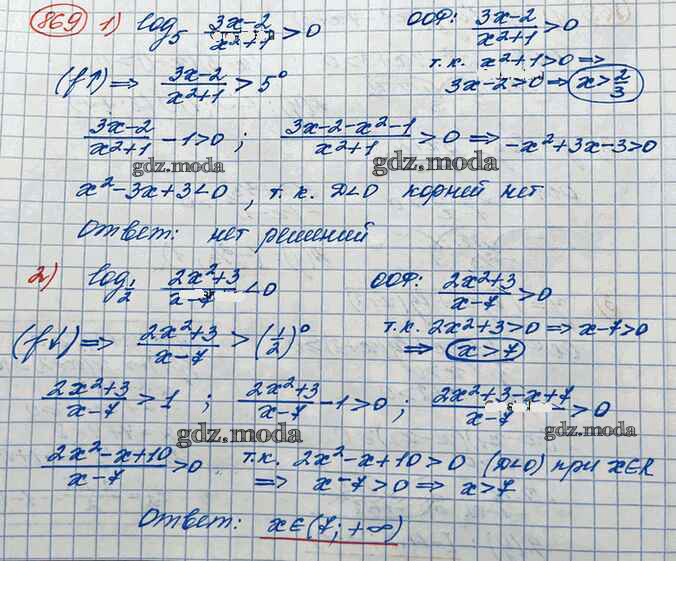 869 1) log₅ (3x-2)/(x²+1) > 0   ООФ: (3x-2)/(x²+1) > 0
т.к. x²+1>0 ⇒
(f↑) ⇒ (3x-2)/(x²+1) > 5⁰   3x-2>0 ⇒ x>2/3
(3x-2)/(x²+1) - 1>0 ; (3x-2-x²-1)/(x²+1) > 0 ⇒ -x²+3x-3>0
gdz.moda gdz.moda
x²-3x+3<0, т.к. D<0 корней нет
Ответ: нет решений
2) log_{1/2} (2x²+3)/(x-7) < 0   ООФ: (2x²+3)/(x-7) > 0
(f↓) ⇒ (2x²+3)/(x-7) > (1/2)⁰   т.к. 2x²+3>0 ⇒ x-7>0
⇒ x>7
(2x²+3)/(x-7) > 1 ; (2x²+3)/(x-7) - 1>0 ; (2x²+3-x+7)/(x-7) > 0
gdz.moda gdz.moda
(2x²-x+10)/(x-7) > 0   т.к. 2x²-x+10>0 (D<0) при x∈R
⇒ x-7>0 ⇒ x>7
Ответ: x∈(7; +∞)